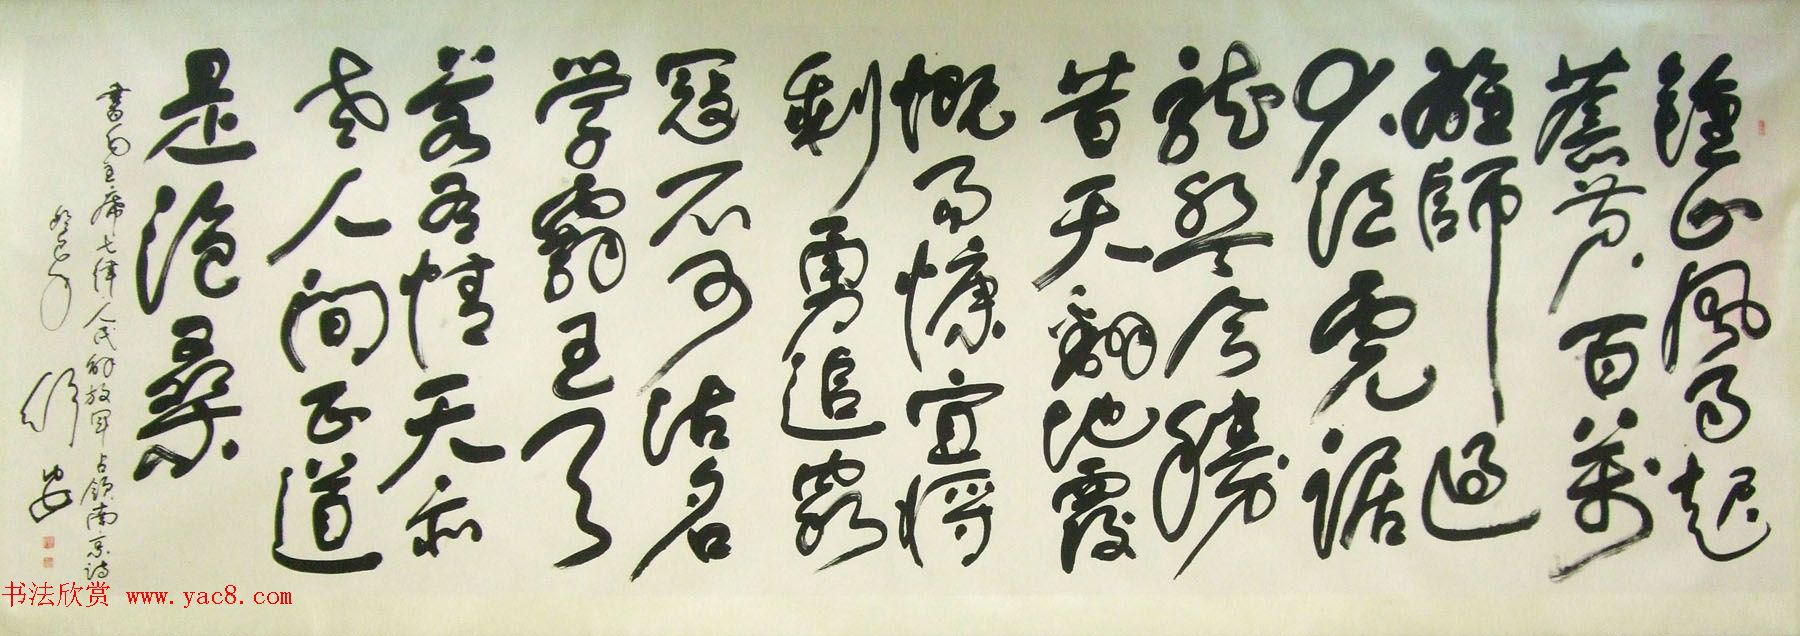 鐘山風雨起
蒼黃百萬
雄師過
大江虎踞
龍盤今勝
昔天翻地覆
慨而慷宜將
剩勇追窮
寇不可沽名
学霸王天
若有情天亦
老人間正道
是滄桑
書毛主席七律人民解放軍占領南京詩
书法欣赏 www.yac8.com